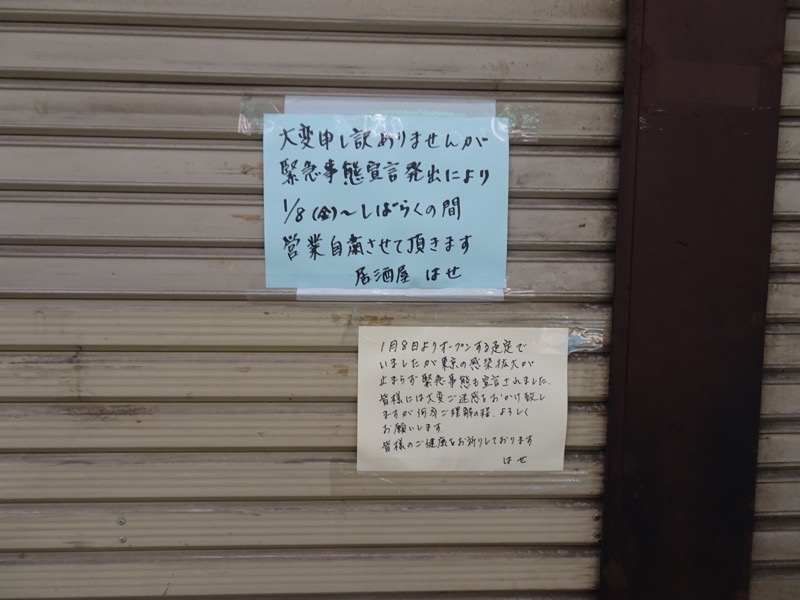 大変申し訳ありませんが
緊急事態宣言発出により
1/8(金)〜しばらくの間
営業自粛させて頂きます
居酒屋 はせ
1月8日よりオープンする予定で
いましたが東京の感染拡大が
止まらず緊急事態も宣言されました.
皆様には大変ご迷惑をおかけ致し
ますが何卒ご理解の様、よろしく
お願いします
皆様のご健康をお祈りしております
はせ